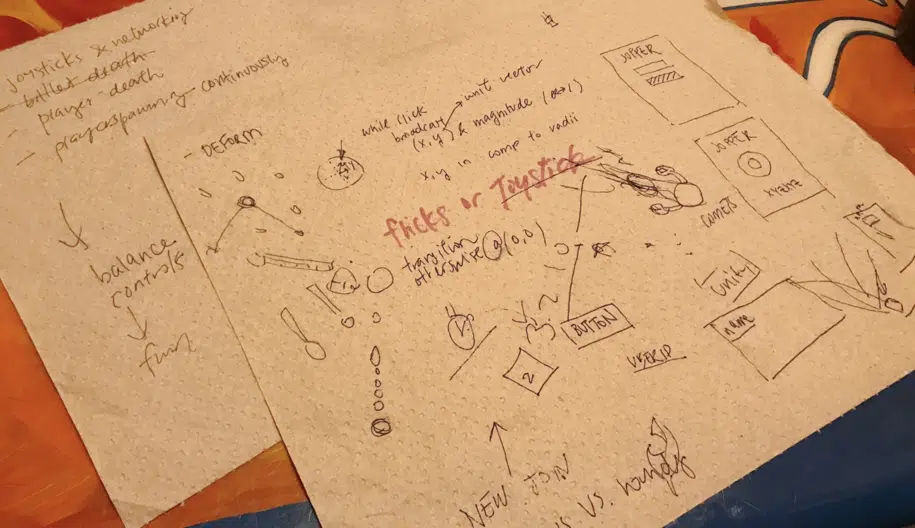 joysticks & networking
- bullet death
- player death
- player spawning continuously
balance
controls
fun
- DEFORM
while click
broadcast → unit vector
(x,y) & magnitude (0→1)
x,y in comp to radii
flicks or Joystick
transition
otherwise (0,0)
JOPPER
JOPPER
COMETS
Unity
name
BUTTON
USERID
2
NEW JOIN
VS.